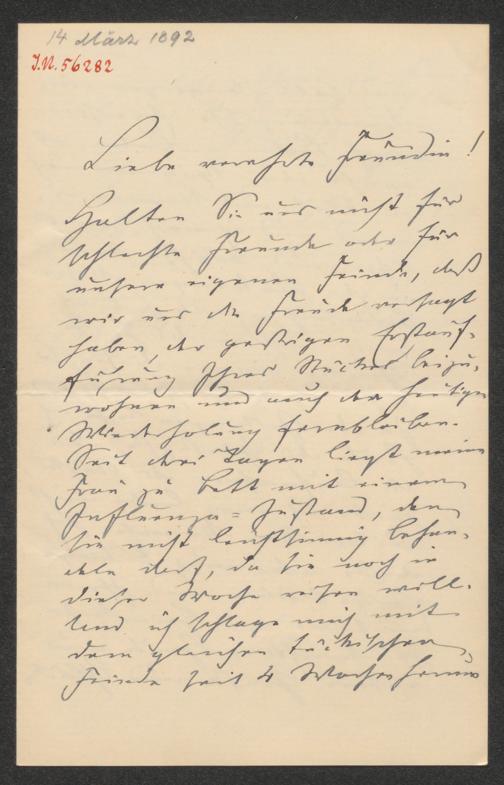 14 März 1892
J.N. 56282
Liebe verehrte Freundin!
Halten Sie uns nicht für
schlechte Freunde oder für
unsere eigenen Feinde, daß
wir uns die Freude versagt
haben, der gestrigen Erstauf-
führung Ihres Stückes beizu-
wohnen und auch der heutigen
Wiederholung fernbleiben.
Seit drei Tagen liegt meine
Frau zu Bett mit einem
Influenza-Zustand, den
sie nicht leichtsinnig behan-
deln darf, da sie noch in
dieser Woche reisen will.
Und ich schlage mich mit
dem gleichen tückischen
Feinde seit 4 Wochen herum